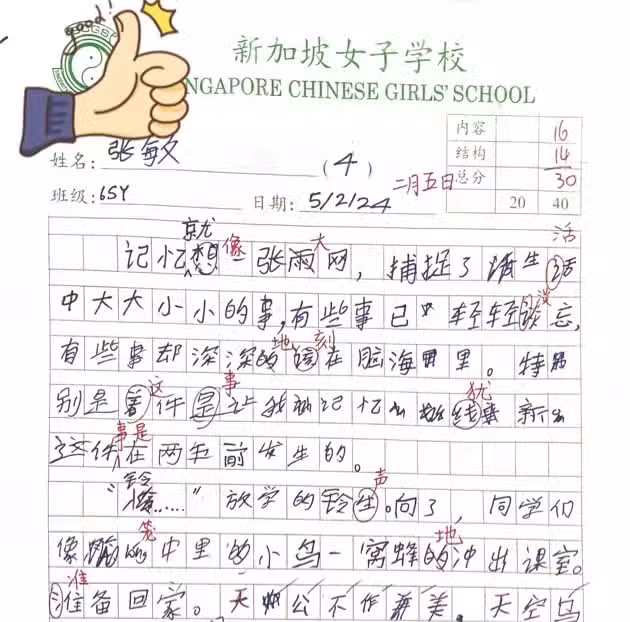 新加坡女子学校
SINGAPORE CHINESE GIRLS' SCHOOL
内容 16
姓名: 张敏 (4) 结构 14
二月五日 总分 30
班级: 6SY 日期: 5/2/24 20 40
就
像 大 活
记忆想 张雨网,捕捉了 生活
中大大小小的事,有些事已 轻轻谈忘,
淡
地 刻
有些事却深深的 在脑海里。特
这 事 犹
别是 件是 记忆 新
事是
这件在两年前发生的。
铃 声
“ ……”放学的铃生。向了,同学们
笼 地
像 中里的小鸟一窝蜂的冲出课室。
准
准备回家。天 公不作美。天空乌